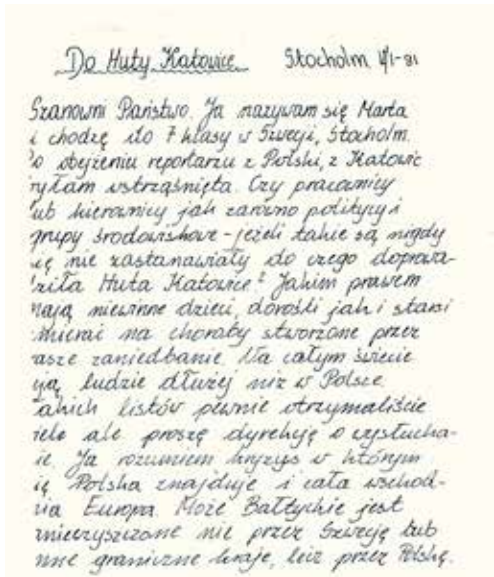 Do Huty Katowice Stocholm 4/1-91
Szanowni Państwo. Ja nazywam się Marta
i chodzę do 7 klasy w Szwecji, Stocholm.
o obejżeniu reportarzu z Polski, z Katowic
yłam wstrząśnięta. Czy pracownicy
ub kierownicy jak zarówno politycy i
grupy środowiskowe - jeżeli takie są nigdy
ię nie zastanawiały do czego doprowa-
ziła Huta Katowice? Jakim prawem
mają niewinne dzieci, dorośli jak i starsi
mierać na choroby stworzone przez
asze zaniedbanie. Na całym świecie
yją ludzie dłużej niż w Polsce.
akich listów pewnie otrzymaliście
iele ale proszę dyrekcję o wysłucha-
ie. Ja rozumiem kryzys w którym
ię Polska znajduje i cała wschod-
nia Europa. Może Bałtyckie jest
anieczyszczone nie przez Szwecję lub
nne graniczne kraje, lecz przez Polskę.